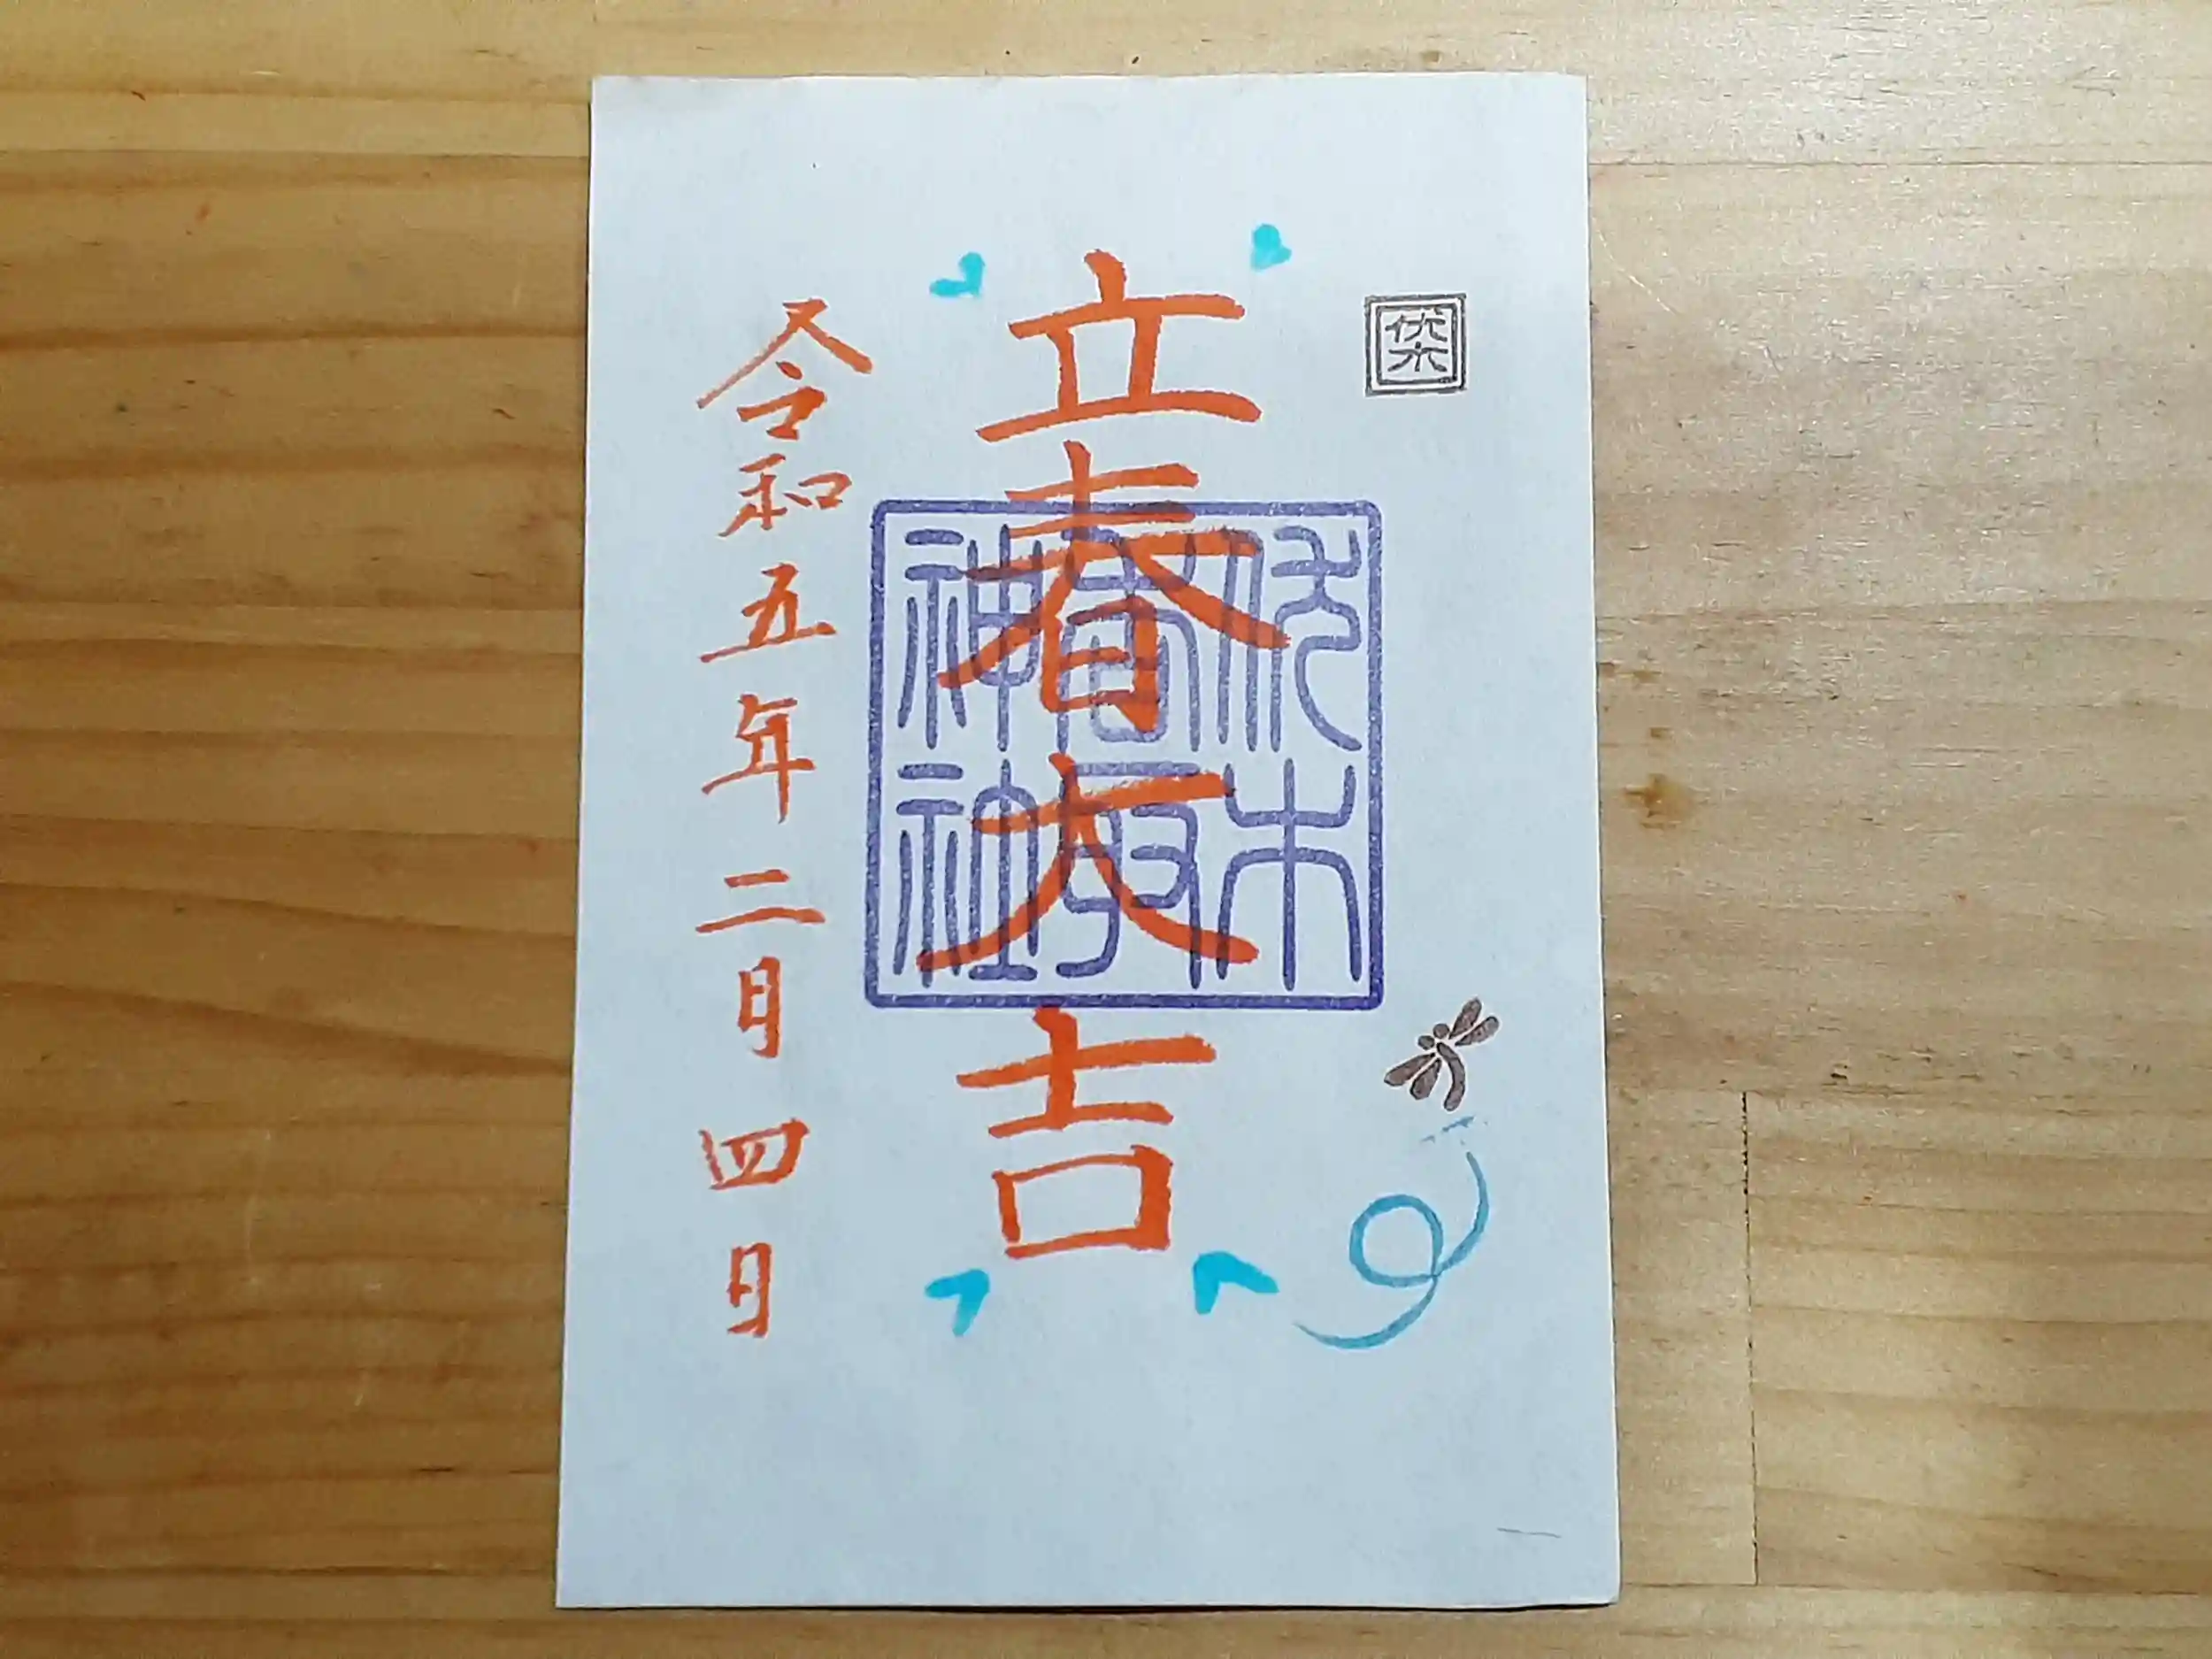 伏木
立春大吉
伏木
香取
神社
令和五年二月四日